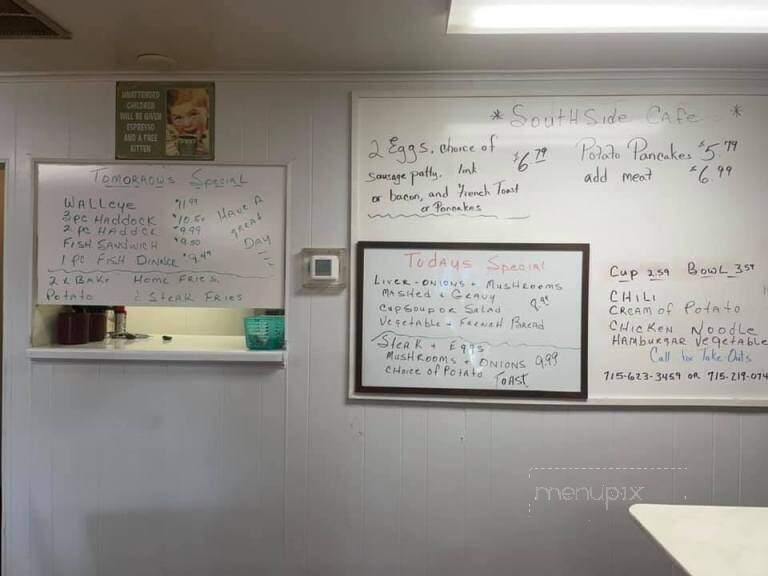 UNATTENDED
CHILDREN
WILL BE GIVEN
ESPRESSO
AND A FREE
KITTEN
TOMORROW'S SPECIAL
WALLEYE $11.99
3 PC HADDOCK $10.50
2 PC HADDCK $9.99
FISH SANDWICH $9.50
1 PC FISH DINNER $9.49
HAVE A
GREAT
DAY
BAKE HOME FRIES,
POTATO & STEAK FRIES
* SOUTHSIDE CAFE *
2 Eggs, choice of
sausage patty, link
or bacon, and French Toast
or Pancakes
$6.79
Potato Pancakes $5.79
add meat $6.99
TODAYS SPECIAL
LIVER-ONIONS + MUSHROOMS
MASHED & GRAVY
CUP SOUP OR SALAD
VEGETABLE + FRENCH BREAD
STEAK + EGGS
MUSHROOMS + ONIONS 9.99
CHOICE OF POTATO
TOAST
CUP 2.59 BOWL 3.59
CHILI
CREAM OF POTATO
CHICKEN NOODLE
HAMBURGAR VEGETABLE
Call for Take Outs
715-623-3459 OR 715-219-074
menupix